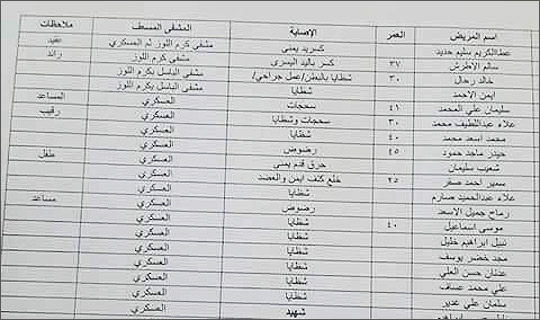 اسم المريض العمر الإصابة المشفى المسعف ملاحظات
عطاالكريم سليم حديد كسر يد يمنى مشفى كرم اللوز ثم العسكري عقيد
سالم الاطرش ٣٧ كسر باليد اليسرى مشفى كرم اللوز رائد
خالد رحال ٣٠ شظايا بالبطن/عمل جراحي/ مشفى الباسل بكرم اللوز
ايمن الاحمد شظايا مشفى الباسل بكرم اللوز
سليمان علي المحمد ٤١ سحجات العسكري المساعد
علاء عبداللطيف محمد ٣٠ سحجات وشظايا العسكري رقيب
محمد اسعد محمد ٤٠ شظايا العسكري
حيدر ماجد حمود ٤٥ رضوض العسكري
شعيب سليمان حرق قدم يمنى العسكري طفل
سمير احمد صقر ٢٥ خلع كتف ايمن والعضد العسكري
علاء عبدالحميد صارم شظايا العسكري
رماح جميل الاسعد رضوض العسكري مساعد
موسى اسماعيل ٤٠ شظايا العسكري
نبيل ابراهيم خليل شظايا العسكري
مجد خضر يوسف شظايا العسكري
عدنان حسن العلي شظايا العسكري
علي محمد عساف شظايا العسكري
سلمان علي غدير شظايا العسكري
شهيد العسكري